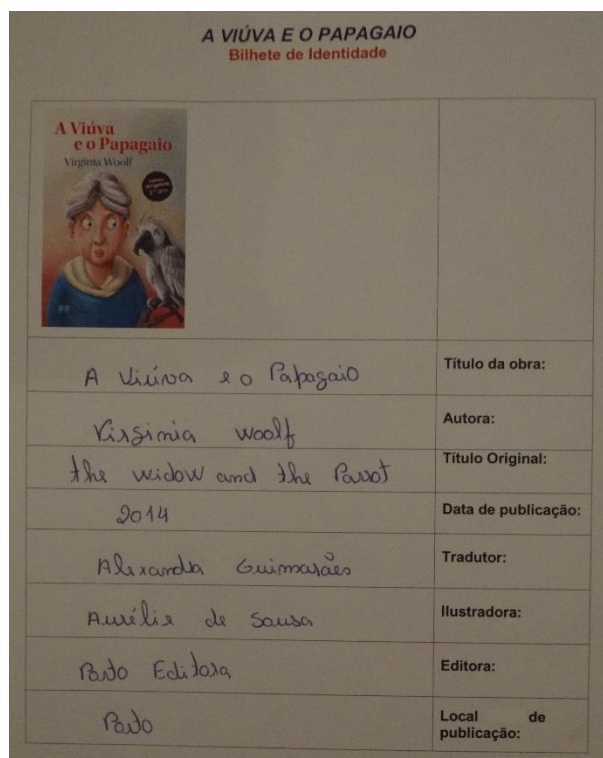 A VIÚVA E O PAPAGAIO
Bilhete de Identidade
A Viúva
e o Papagaio
Virginia Woolf
A Viúva e o Papagaio
Título da obra:
Virginia Woolf
Autora:
The widow and the Parrot
Título Original:
2014
Data de publicação:
Alexandra Guimarães
Tradutor:
Aurélie de Sousa
Ilustradora:
Porto Editora
Editora:
Porto
Local de
publicação: